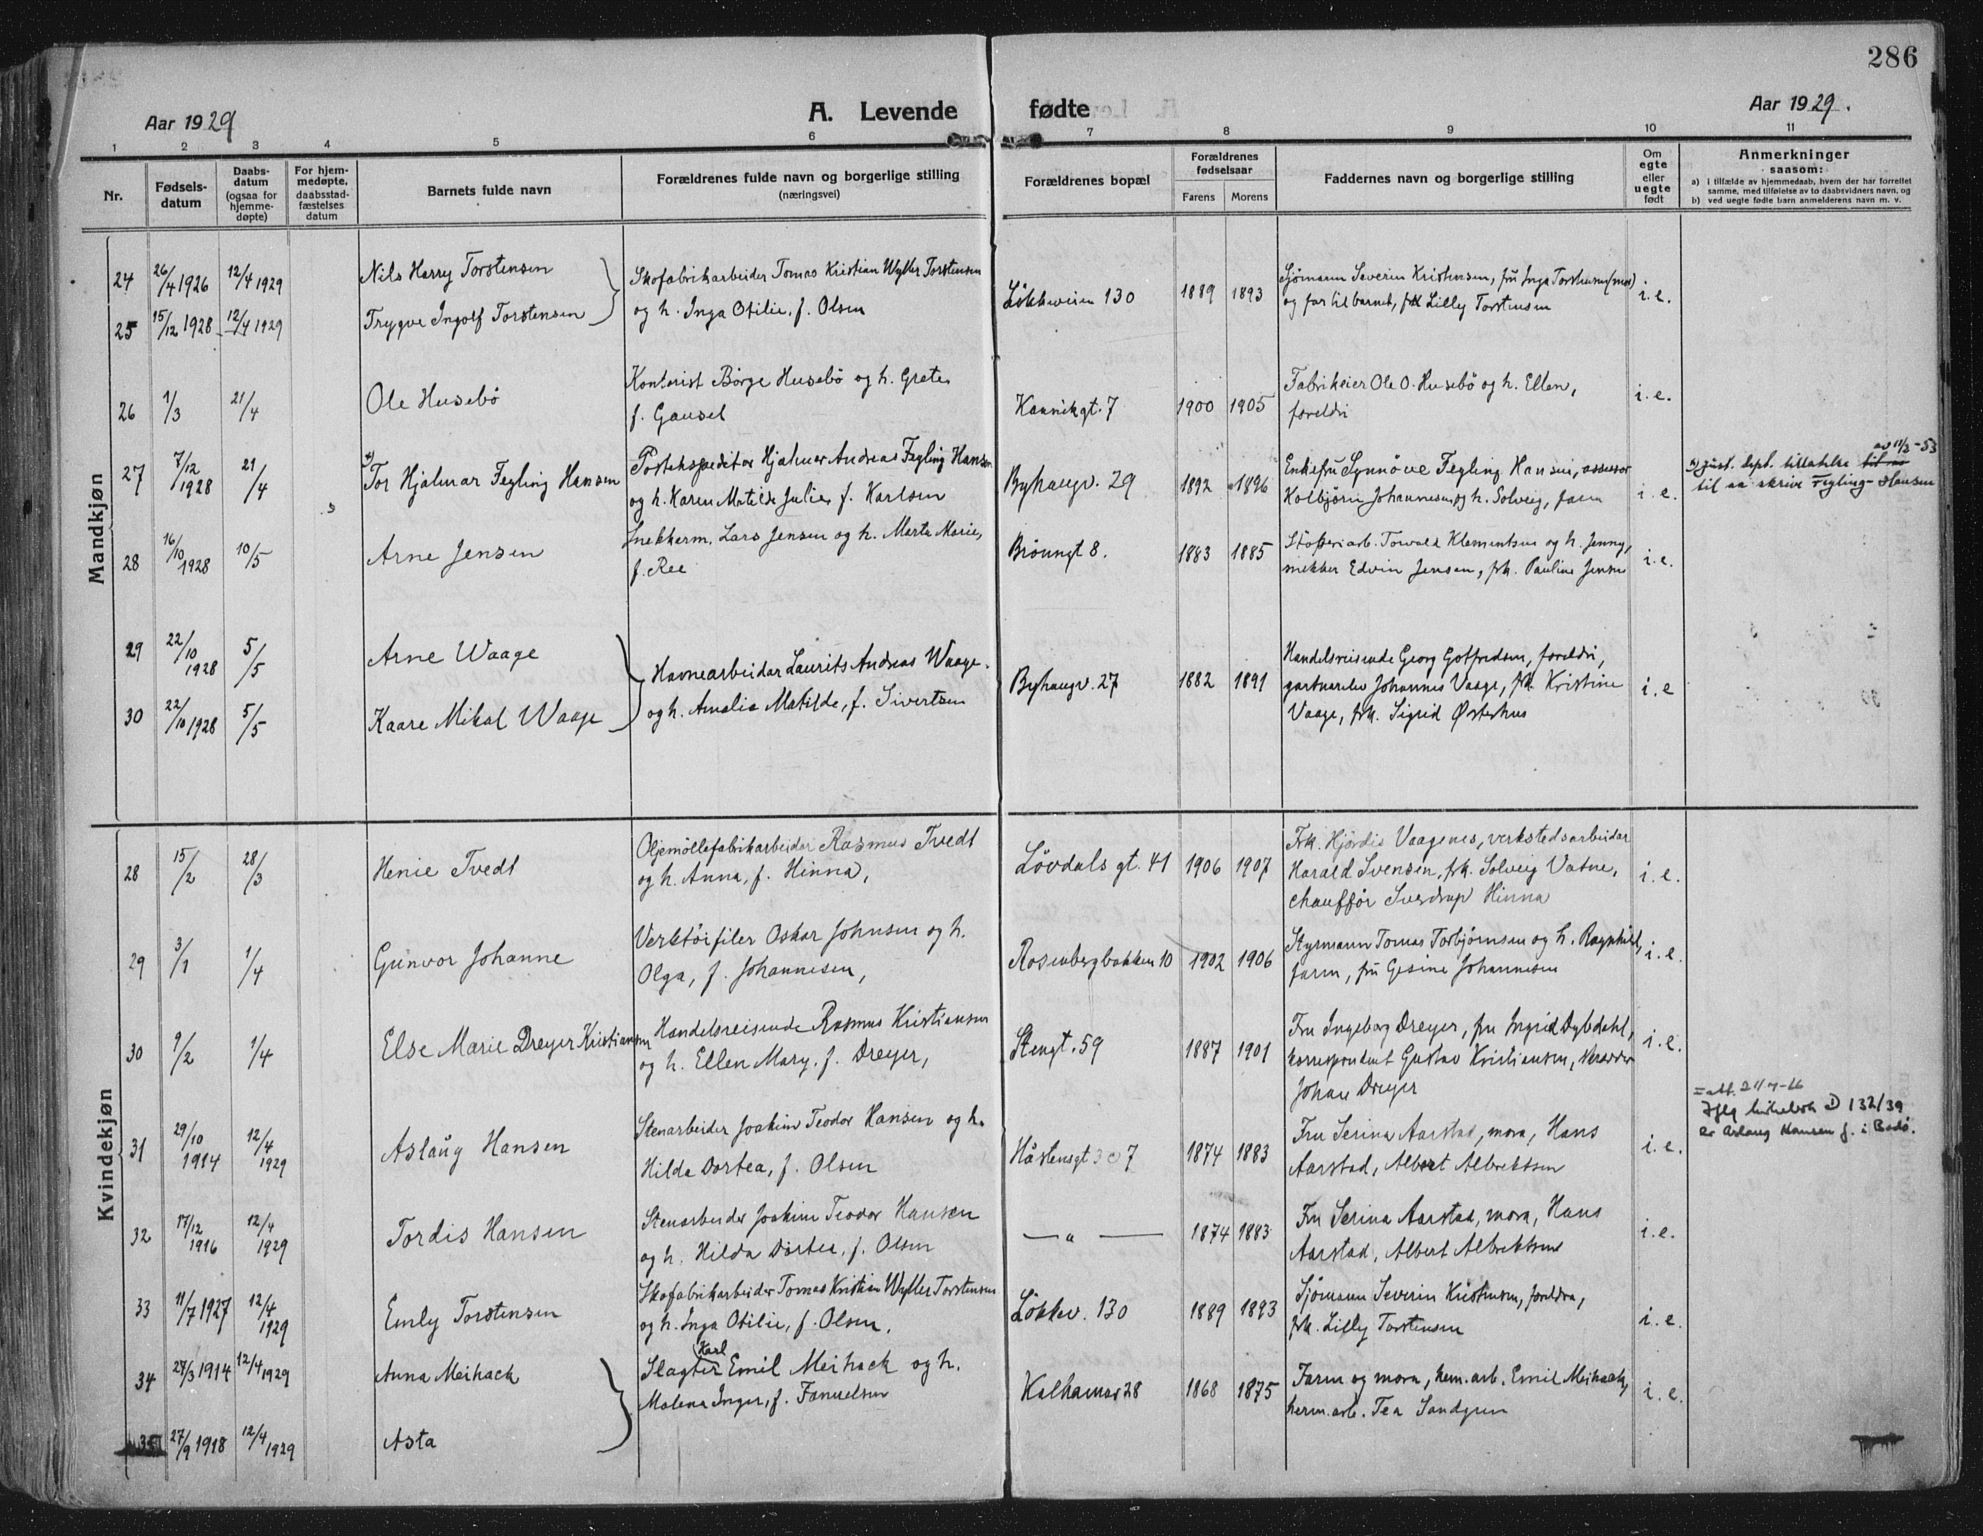 286
Aar 1929
A. Levende fødte
Aar 1929.
1 2 3 4 5 6 7 8 9 10 11
Nr.
Fødsels-
datum
Daabs-
datum
(ogsaa for
hjemme-
døpte)
For hjem-
medøpte,
daabsstad-
fæstelses
datum
Barnets fulde navn
Forældrenes fulde navn og borgerlige stilling
(næringsvei)
Forældrenes bopæl
Forældrenes
fødselsaar
Farens Morens
Faddernes navn og borgerlige stilling
Om
egte
eller
uegte
født
Anmerkninger
saasom:
a) i tilfælde av hjemmedaab, hvem der har forrettet
samme, med tilføielse av to daabsvidners navn, og
b) ved uegte fødte barn anmelderens navn m. v.
Mandkjøn
24 26/4 1926 12/4 1929 Nils Harry Torstensen
25 15/12 1928 12/4 1929 Trygve Ingolf Torstensen
Skofabrikarbeider Tomas Kristian Wyller Torstensen
og h. Inga Otilie, f. Olsen
Lökkeveien 130 1889 1893
Sjømann Severin Kristensen, fru Inga Torstensen (mor)
og far til barnet, frk Lilly Torstensen
i.e.
26 1/3 21/4 Ole Husebö
Kontorist Börge Husebö og h. Grete
f. Gausel
Kannikgt. 7 1900 1905
Fabrikeier Ole O. Husebö og h. Ellen,
foreldri
i.e.
27 7/12 1928 21/4 Tor Hjalmar Fegling Hansen
Postekspeditør Hjalmar Andreas Fegling Hansen
og h. Karen Matilde Julie, f. Karlsen
Byhaugv. 29 1892 1896
Enkefru Synnöve Fegling Hansen, assessor
Kolbjörn Johannesen og h. Solveig, farm
i.e.
av 11/2-53
just. dept. tillatelse
til aa skrive Fegling-Hansen
28 16/10 1928 10/5 Arne Jensen
Snekkerm. Lars Jensen og h. Marta Marie,
f. Ree
Bröungt 8. 1883 1885
Støperiarb. Torvald Klementsen og h. Jenny,
snekker Edvin Jensen, frk. Pauline Jensen
i.e.
29 22/10 1928 5/5 Arne Waage
30 22/10 1928 5/5 Kaare Mikal Waage
Havnearbeider Laurits Andreas Waage
og h. Amalia Matilde, f. Sivertsen
Byhaugv. 27 1882 1891
Handelsreisende Georg Gotfredsen, foreldri,
gartnerelev Johannes Vaage, frk. Kristine
Vaage, frk. Sigrid Østerhus
i.e
Kvindekjøn
28 15/2 28/3 Henie Tvedt
Oljemöllefabrikarbeider Rasmus Tvedt
og h. Anna, f. Hinna,
Lövdals gt. 41 1906 1907
Frk. Hjördis Vaagenes, verkstedsarbeidar
Harald Svensen, frk. Solveig Vatne,
chaufför Sverdrup Hinna
i.e.
29 3/1 1/4 Gunvor Johanne
Verktöifiler Oskar Johnsen og h.
Olga, f. Johannesen,
Rosenbergbakken 10 1902 1906
Styrmann Tomas Torbjörnsen og h. Ragnhild,
farm, fru Gesine Johannesen
i.e.
30 9/2 1/4 Else Marie Dreyer Kristiansen
Handelsreisende Rasmus Kristiansen
og h. Ellen Mary. f. Dreyer,
Stengt. 59 1887 1901
Fru Ingeborg Dreyer, fru Ingrid Dybdahl,
korrespondent Gustav Kristiansen, skrædder
Johan Dreyer
i.e.
31 29/10 1914 12/4 1929 Aslaug Hansen
Stenarbeider Joakim Teodor Hansen og h.
Hilda Dortea, f. Olsen
Håstensgt 307 1874 1883
Fru Serina Aarstad, mora, Hans
Aarstad, Albert Albrektsen
i.e.
Iflg kirkebok D 132/39
er Aslaug Hansen f. i Bodö.
32 17/12 1916 12/4 1929 Tordis Hansen
Stenarbeider Joakim Teodor Hansen
og h. Hilda Dortea, f. Olsen
— " — 1874 1883
Fru Serina Aarstad, mora, Hans
Aarstad, Albert Albrektsen
i.e.
33 11/7 1927 12/4 1929 Emly Torstensen
Skofabrikarbeider Tomas Kristian Wyller Torstensen
og h. Inga Otilie, f. Olsen.
Lökkev. 130 1889 1893
Sjömann Severin Kristensen, foreldra,
frk. Lilly Torstensen
i.e.
34 27/3 1914 12/4 1929 Anna Meihack
35 27/9 1918 12/4 1929 Asta
Karl
Slagter Emil Meihack og h.
Malena Inger, f. Fanuelsen
Kalhamar 28 1868 1875
Farm og mora, herm.arb. Emil Meihack,
herm.arb. Tea Sandgren
i.e.